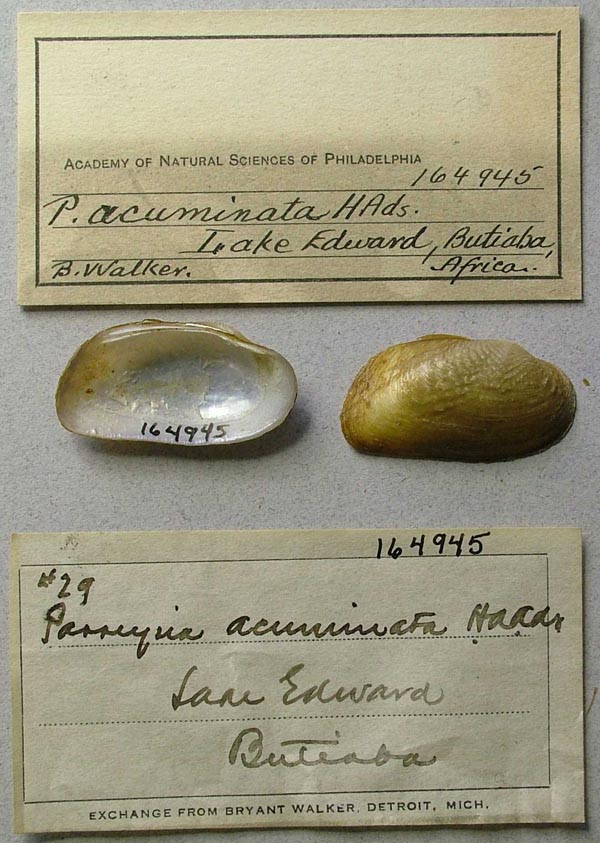 ACADEMY OF NATURAL SCIENCES OF PHILADELPHIA
164945
P. acuminata HAds.
Lake Edward, Butiaba,
B. Walker. Africa.
164945
164945
#29
Parreysia acuminata H. Adas
Lake Edward
Butiaba
EXCHANGE FROM BRYANT WALKER, DETROIT, MICH.